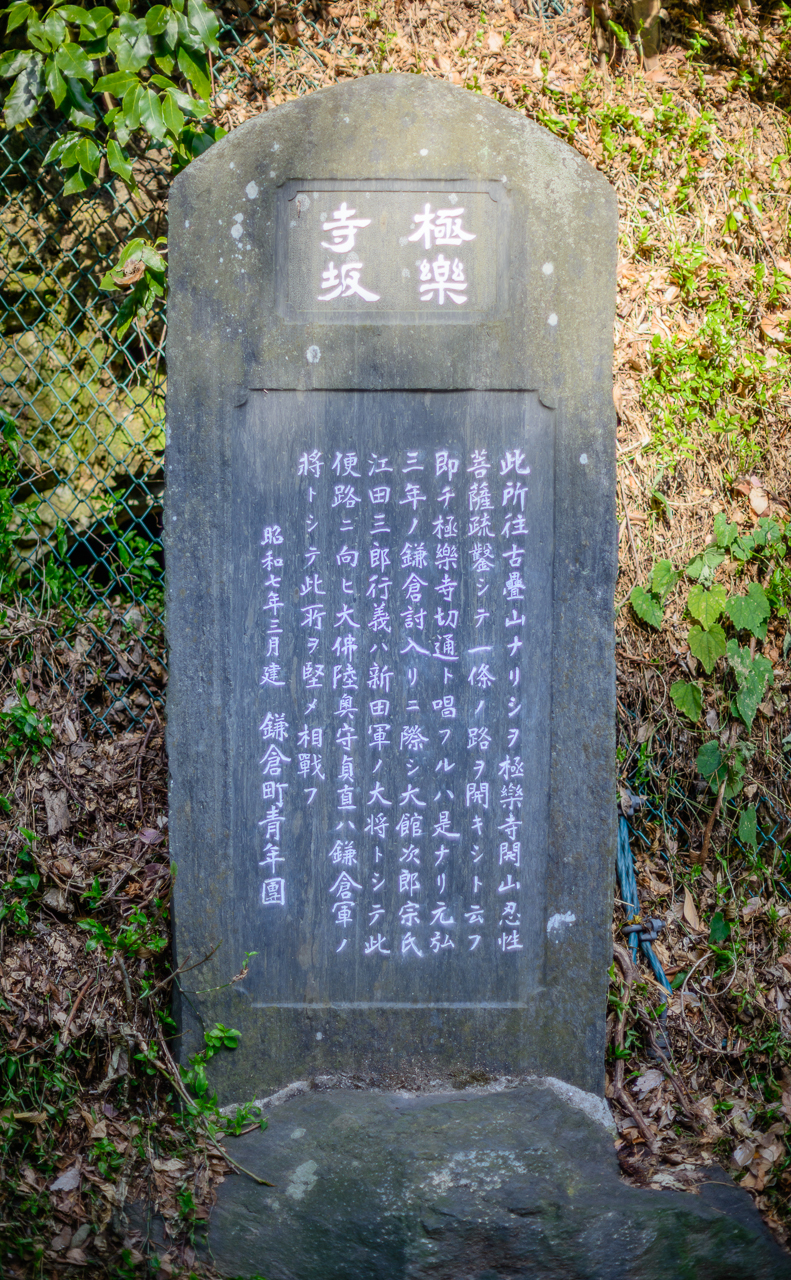 極樂
寺坂
此所往古疊山ナリシヲ極樂寺開山忍性
菩薩疏鑿シテ一條ノ路ヲ開キシト云フ
即チ極樂寺切通ト唱フルハ是ナリ元弘
三年ノ鎌倉討入リニ際シ大館次郎宗氏
江田三郎行義ハ新田軍ノ大将トシテ此
便路ニ向ヒ大佛陸奥守貞直ハ鎌倉軍ノ
將トシテ此所ヲ堅メ相戰フ
昭和七年三月建 鎌倉町青年團